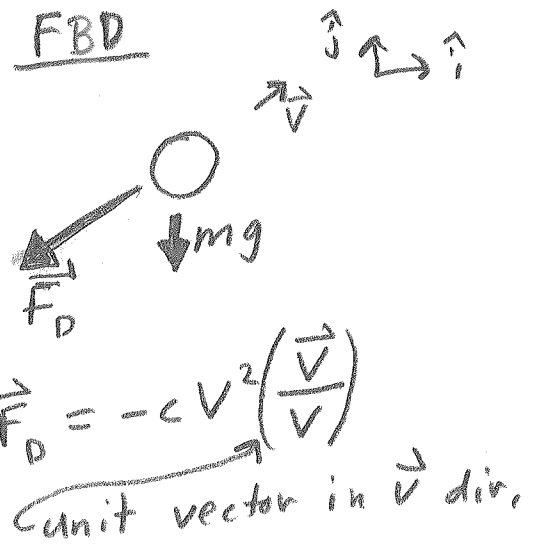 FBD
ĵ î
v⃗
mg
F⃗_D
F⃗_D = -c V² (v⃗/v)
unit vector in v⃗ dir.